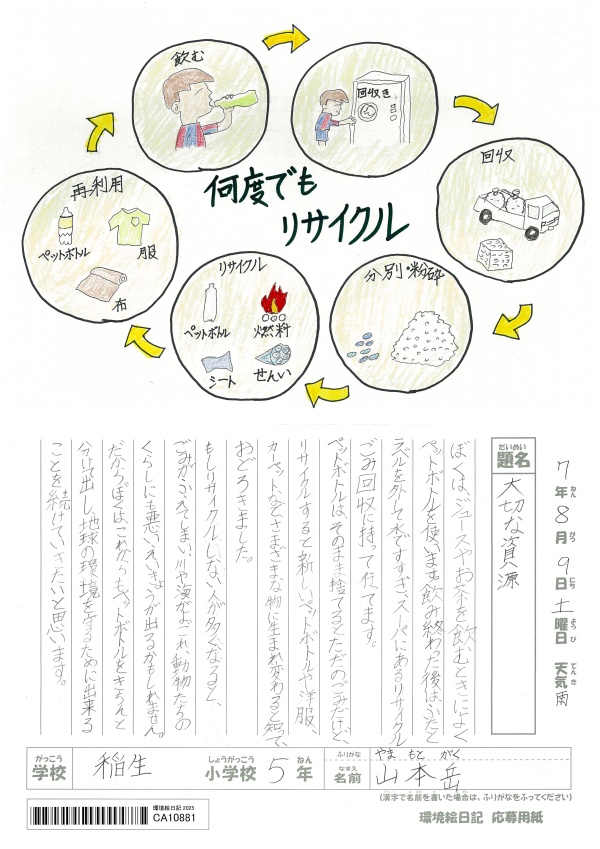 飲む
回収き
回収
分別・粉砕
リサイクル
ペットボトル
燃料
シート
せんい
再利用
ペットボトル
服
布
何度でも
リサイクル
7年8月9日土曜日 天気 雨
ねん がつ にち ようび てんき
だいめい
題名
大切な資源
ぼくは、ジュースやお茶を飲むときによく
ペットボトルを使います。飲み終わった後は、ふたと
ラベルを外して水ですすぎ、スーパーにあるリサイクル
ごみ回収に持って行てます。
ペットボトルは、そのまま捨てるとただのごみだけど、
リサイクルすると新しいペットボトルや洋服、
カーペットなどさまざまな物に生まれ変わると知って、
おどろきました。
もしリサイクルしない人が多くなると、
ごみがふえてしまい、川や海がよごれ、動物たちの
くらしにも悪いえいきょうが出るかもしれません。
だからぼくは、これからもペットボトルをきちんと
分けて出し、地球の環境を守るために出来る
ことを続けていきたいと思います。
がっこう しょうがっこう ねん ふりがな やまもと がく
学校 稲生 小学校 5年 なまえ 名前 山本岳
(漢字で名前を書いた場合は、ふりがなをふってください)
環境絵日記 2025
CA10881
環境絵日記 応募用紙